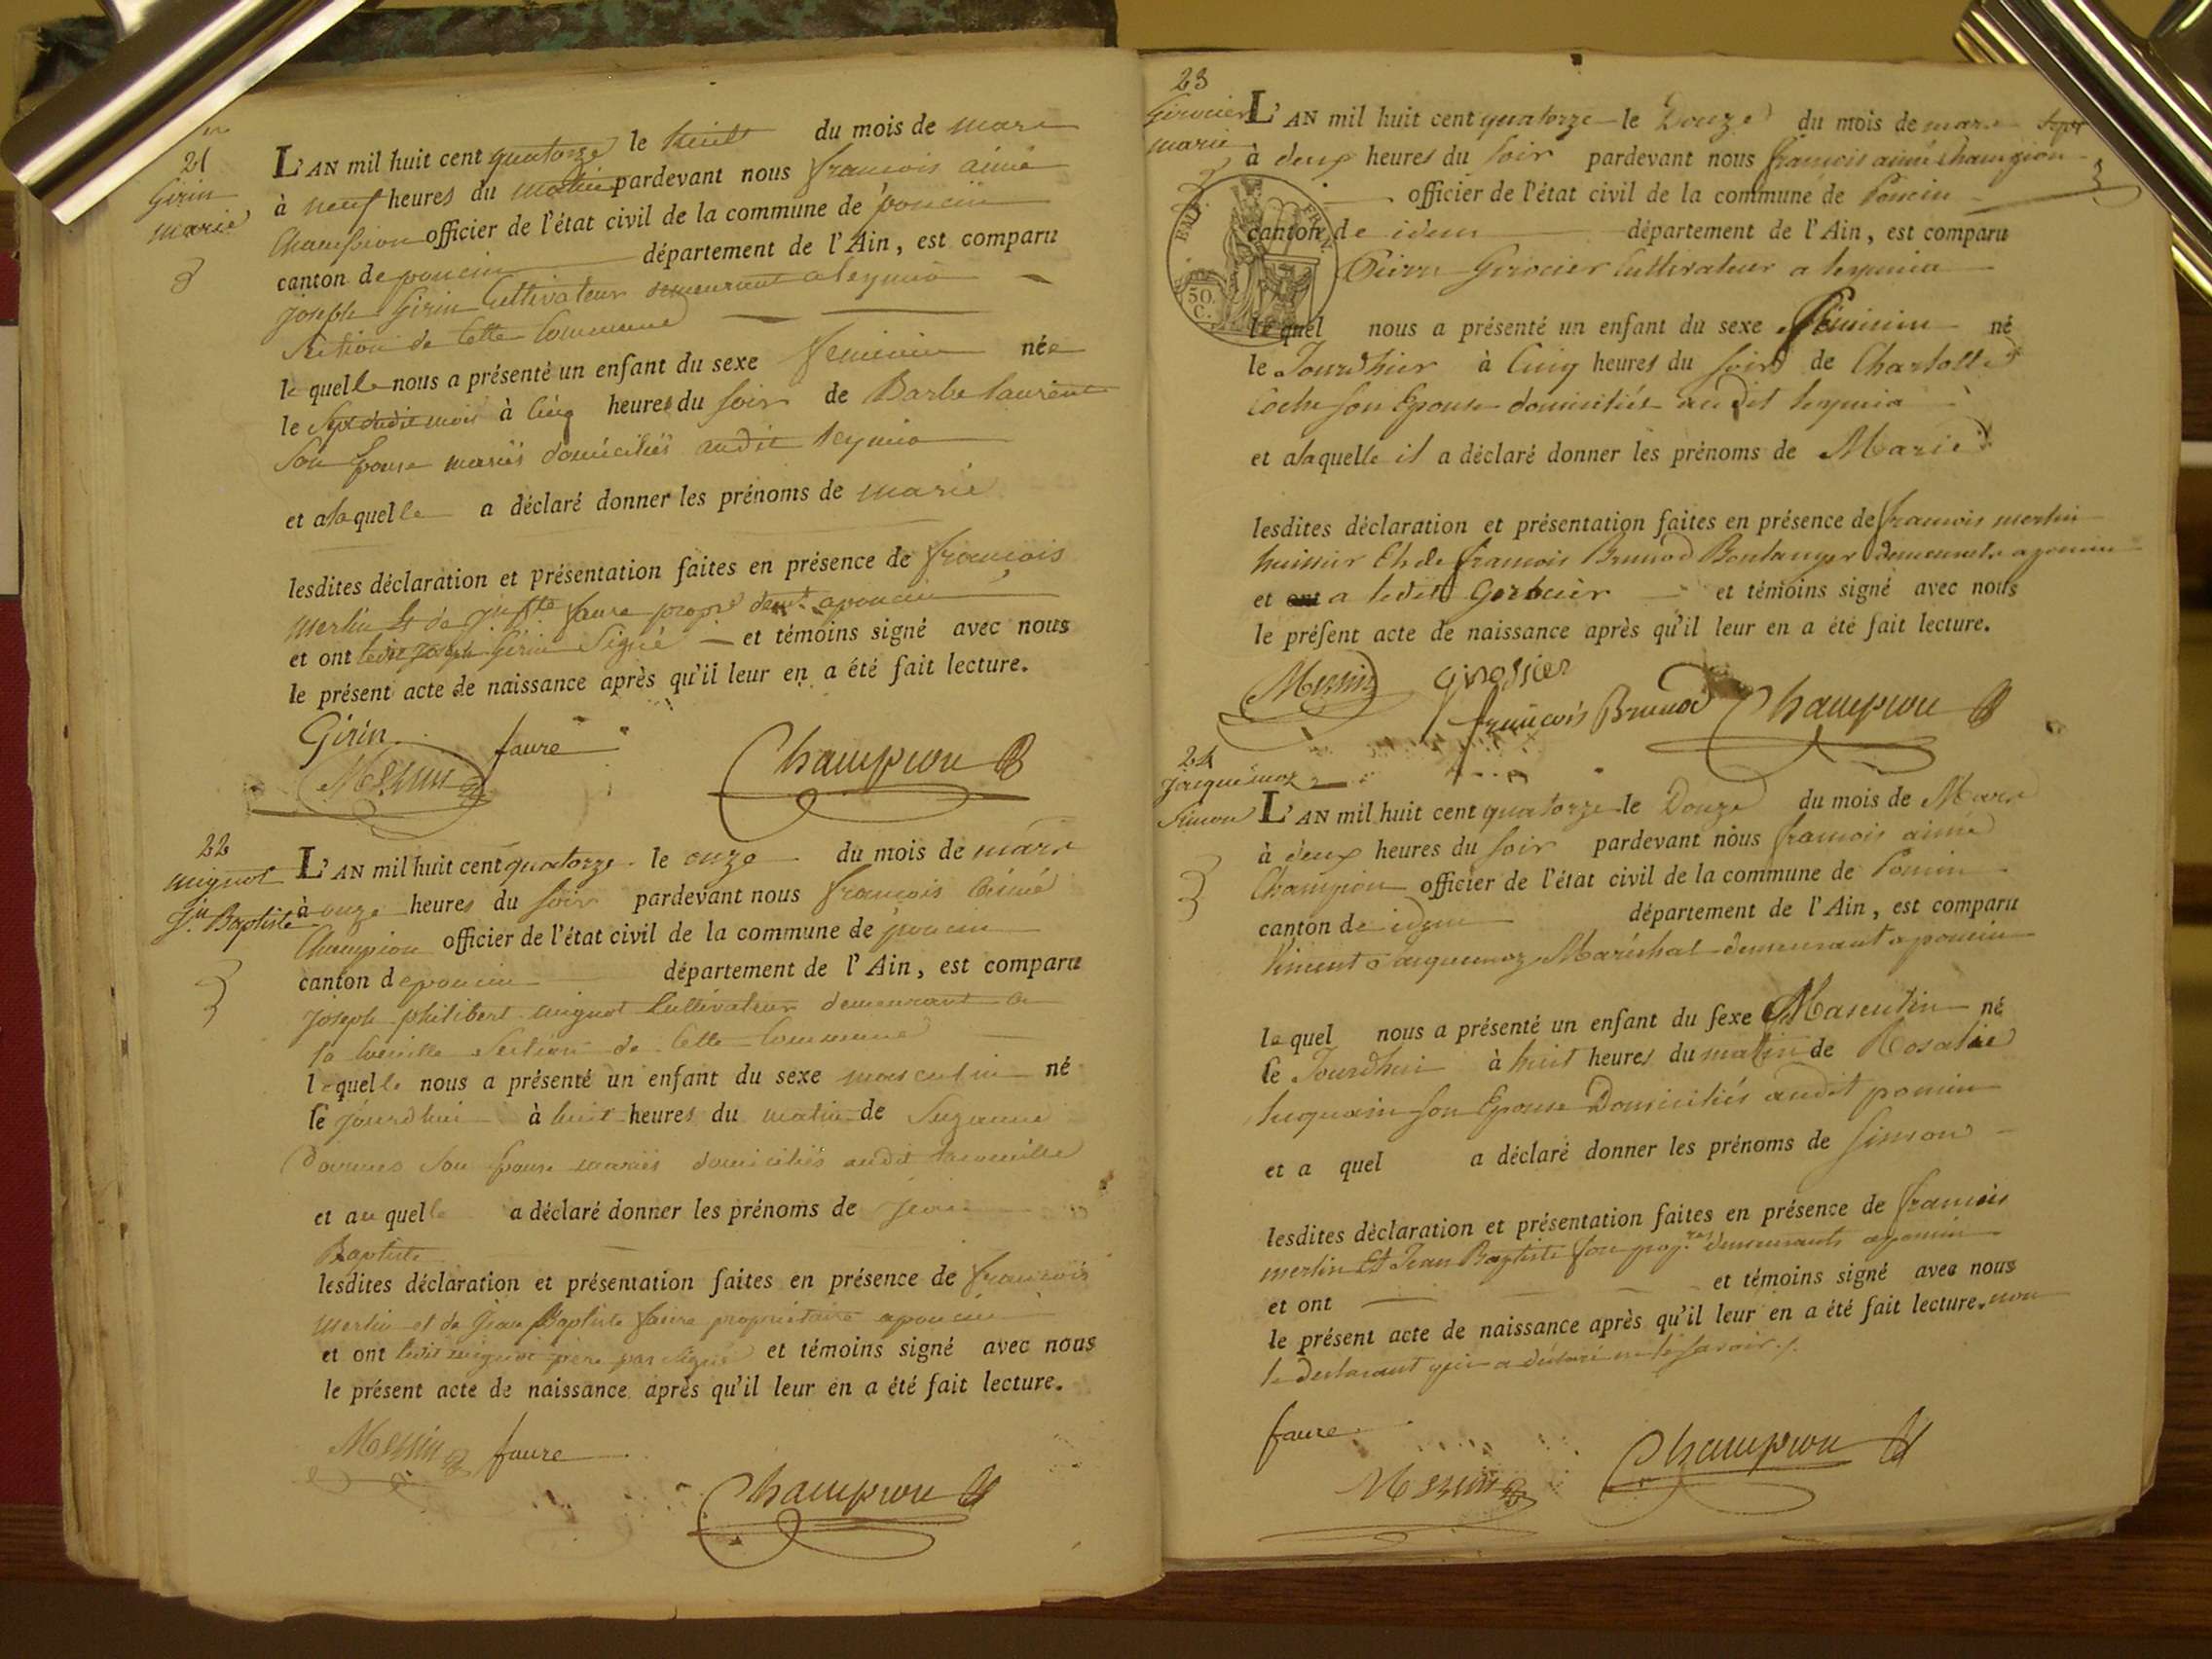 21
Girin
marie
L'AN mil huit cent quatorze le huit du mois de mars
à neuf heures du matin pardevant nous françois aimé
Champion officier de l'état civil de la commune de poncin
canton de poncin département de l'Ain, est comparu
joseph Girin Cultivateur demeurant a leymia
Section de Cette Commune
le quelle nous a présenté un enfant du sexe feminin née
le Sept dudit mois à Cinq heures du soir de Barbe laurent
Son Epouse mariés domiciliés audit leymia
et a la quelle a déclaré donner les prénoms de marie
lesdites déclaration et présentation faites en présence de françois
merlin & de jn Bte faure propre demt a poncin
et ont ledit joseph Girin Signé et témoins signé avec nous
le présent acte de naissance après qu'il leur en a été fait lecture.
Girin faure
Merlin Champion
22
mignot
Jn Baptiste
L'AN mil huit cent quatorze le onze du mois de mars
à onze heures du soir pardevant nous françois Aimé
Champion officier de l'état civil de la commune de poncin
canton de poncin département de l'Ain, est comparu
joseph philibert mignot Cultivateur demeurant a
la Section de Cette Commune
le quelle nous a présenté un enfant du sexe masculin né
le jourdhui à huit heures du matin de Suzanne
son Epouse mariés domiciliés audit
et au quelle a déclaré donner les prénoms de jean
Baptiste
lesdites déclaration et présentation faites en présence de françois
merlin et de jean Baptiste faure propriétaire a poncin
et ont ledit mignot père pas signé et témoins signé avec nous
le présent acte de naissance après qu'il leur en a été fait lecture.
Merlin faure
Champion
23
Girocier
marie
L'AN mil huit cent quatorze le Douze du mois de mars
à deux heures du soir pardevant nous françois aimé Champion
officier de l'état civil de la commune de Poncin
canton de idem département de l'Ain, est comparu
EMP. FRAN.
50. C.
Pierre Girocier Cultivateur a leymia
le quel nous a présenté un enfant du sexe féminin né
le Jourdhier à Cinq heures du soir de Charlotte
Coche son Epouse domiciliés audit leymia
et a laquelle il a déclaré donner les prénoms de Marie
lesdites déclaration et présentation faites en présence de francois merlin
huissier Et de francois Brunod Boulanger demeurants a poncin
et a ledit Girocier et témoins signé avec nous
le présent acte de naissance après qu'il leur en a été fait lecture.
Merlin girossier
françois Brunod Champion
24
jacquemoz
Simon
L'AN mil huit cent quatorze le Douze du mois de Mars
à deux heures du soir pardevant nous francois aimé
Champion officier de l'état civil de la commune de Poncin
canton de idem département de l'Ain, est comparu
Vincent Jacquemoz Maréchal demeurant a poncin
le quel nous a présenté un enfant du sexe Masculin né
le Jourdhui à huit heures du matin de Rosalie
son Epouse Domiciliés audit poncin
et a quel a déclaré donner les prénoms de Simon
lesdites déclaration et présentation faites en présence de francois
merlin Et Jean Baptiste demeurants a poncin
et ont et témoins signé avec nous
le présent acte de naissance après qu'il leur en a été fait lecture. non
le declarant qui a déclaré ne le savoir ./.
faure
Merlin Champion